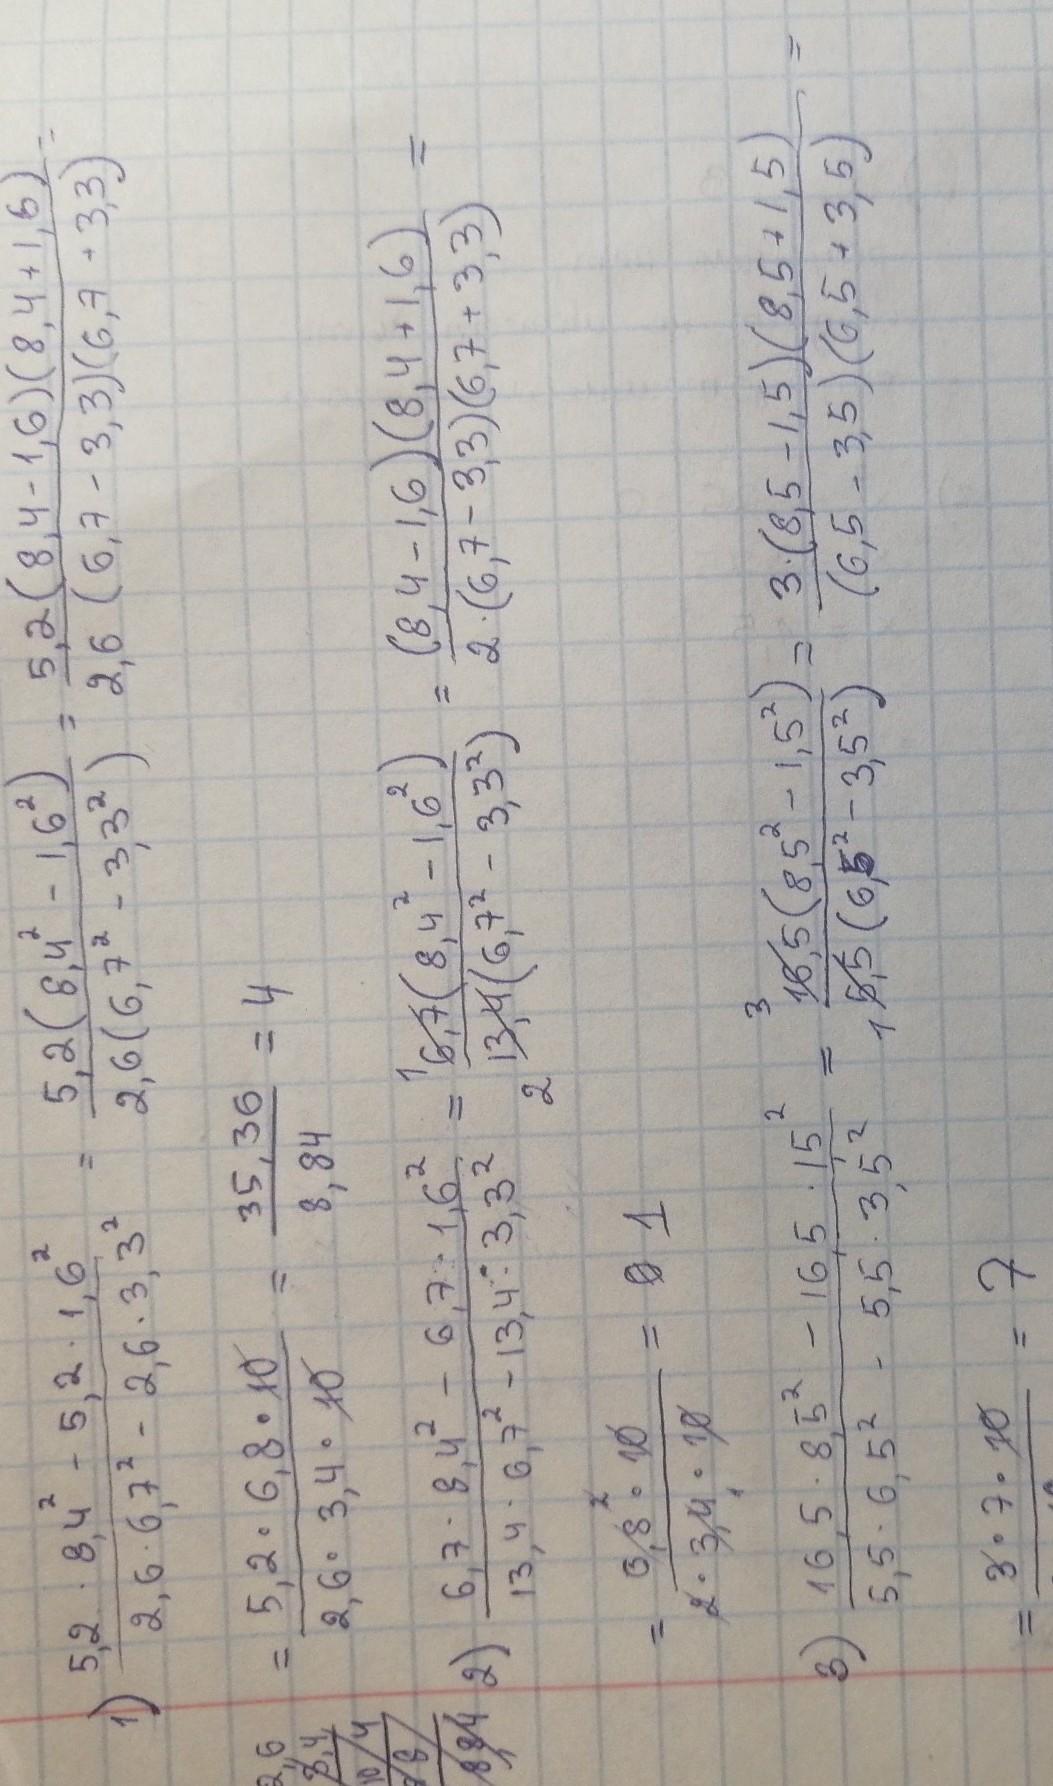 1) (5,2 · 8,4² - 5,2 · 1,6²)/(2,6 · 6,7² - 2,6 · 3,3²) = 5,2(8,4² - 1,6²)/2,6(6,7² - 3,3²) = 5,2(8,4-1,6)(8,4+1,6)/2,6(6,7-3,3)(6,7+3,3) =
= (5,2 · 6,8 · 10)/(2,6 · 3,4 · 10) = 35,36/8,84 = 4
2) (6,7 · 8,4² - 6,7 · 1,6²)/(13,4 · 6,7² - 13,4 · 3,3²) = 1 6,7(8,4² - 1,6²)/2 13,4(6,7² - 3,3²) = (8,4-1,6)(8,4+1,6)/2·(6,7-3,3)(6,7+3,3) =
= (6,8 2 · 10)/(2 · 3,4 · 10) = 1
3) (16,5 · 8,5² - 16,5 · 1,5²)/(5,5 · 6,5² - 5,5 · 3,5²) = 3 16,5(8,5² - 1,5²)/1 5,5(6,5² - 3,5²) = 3·(8,5-1,5)(8,5+1,5)/(6,5-3,5)(6,5+3,5) =
= 3 · 7 · 10 = 7